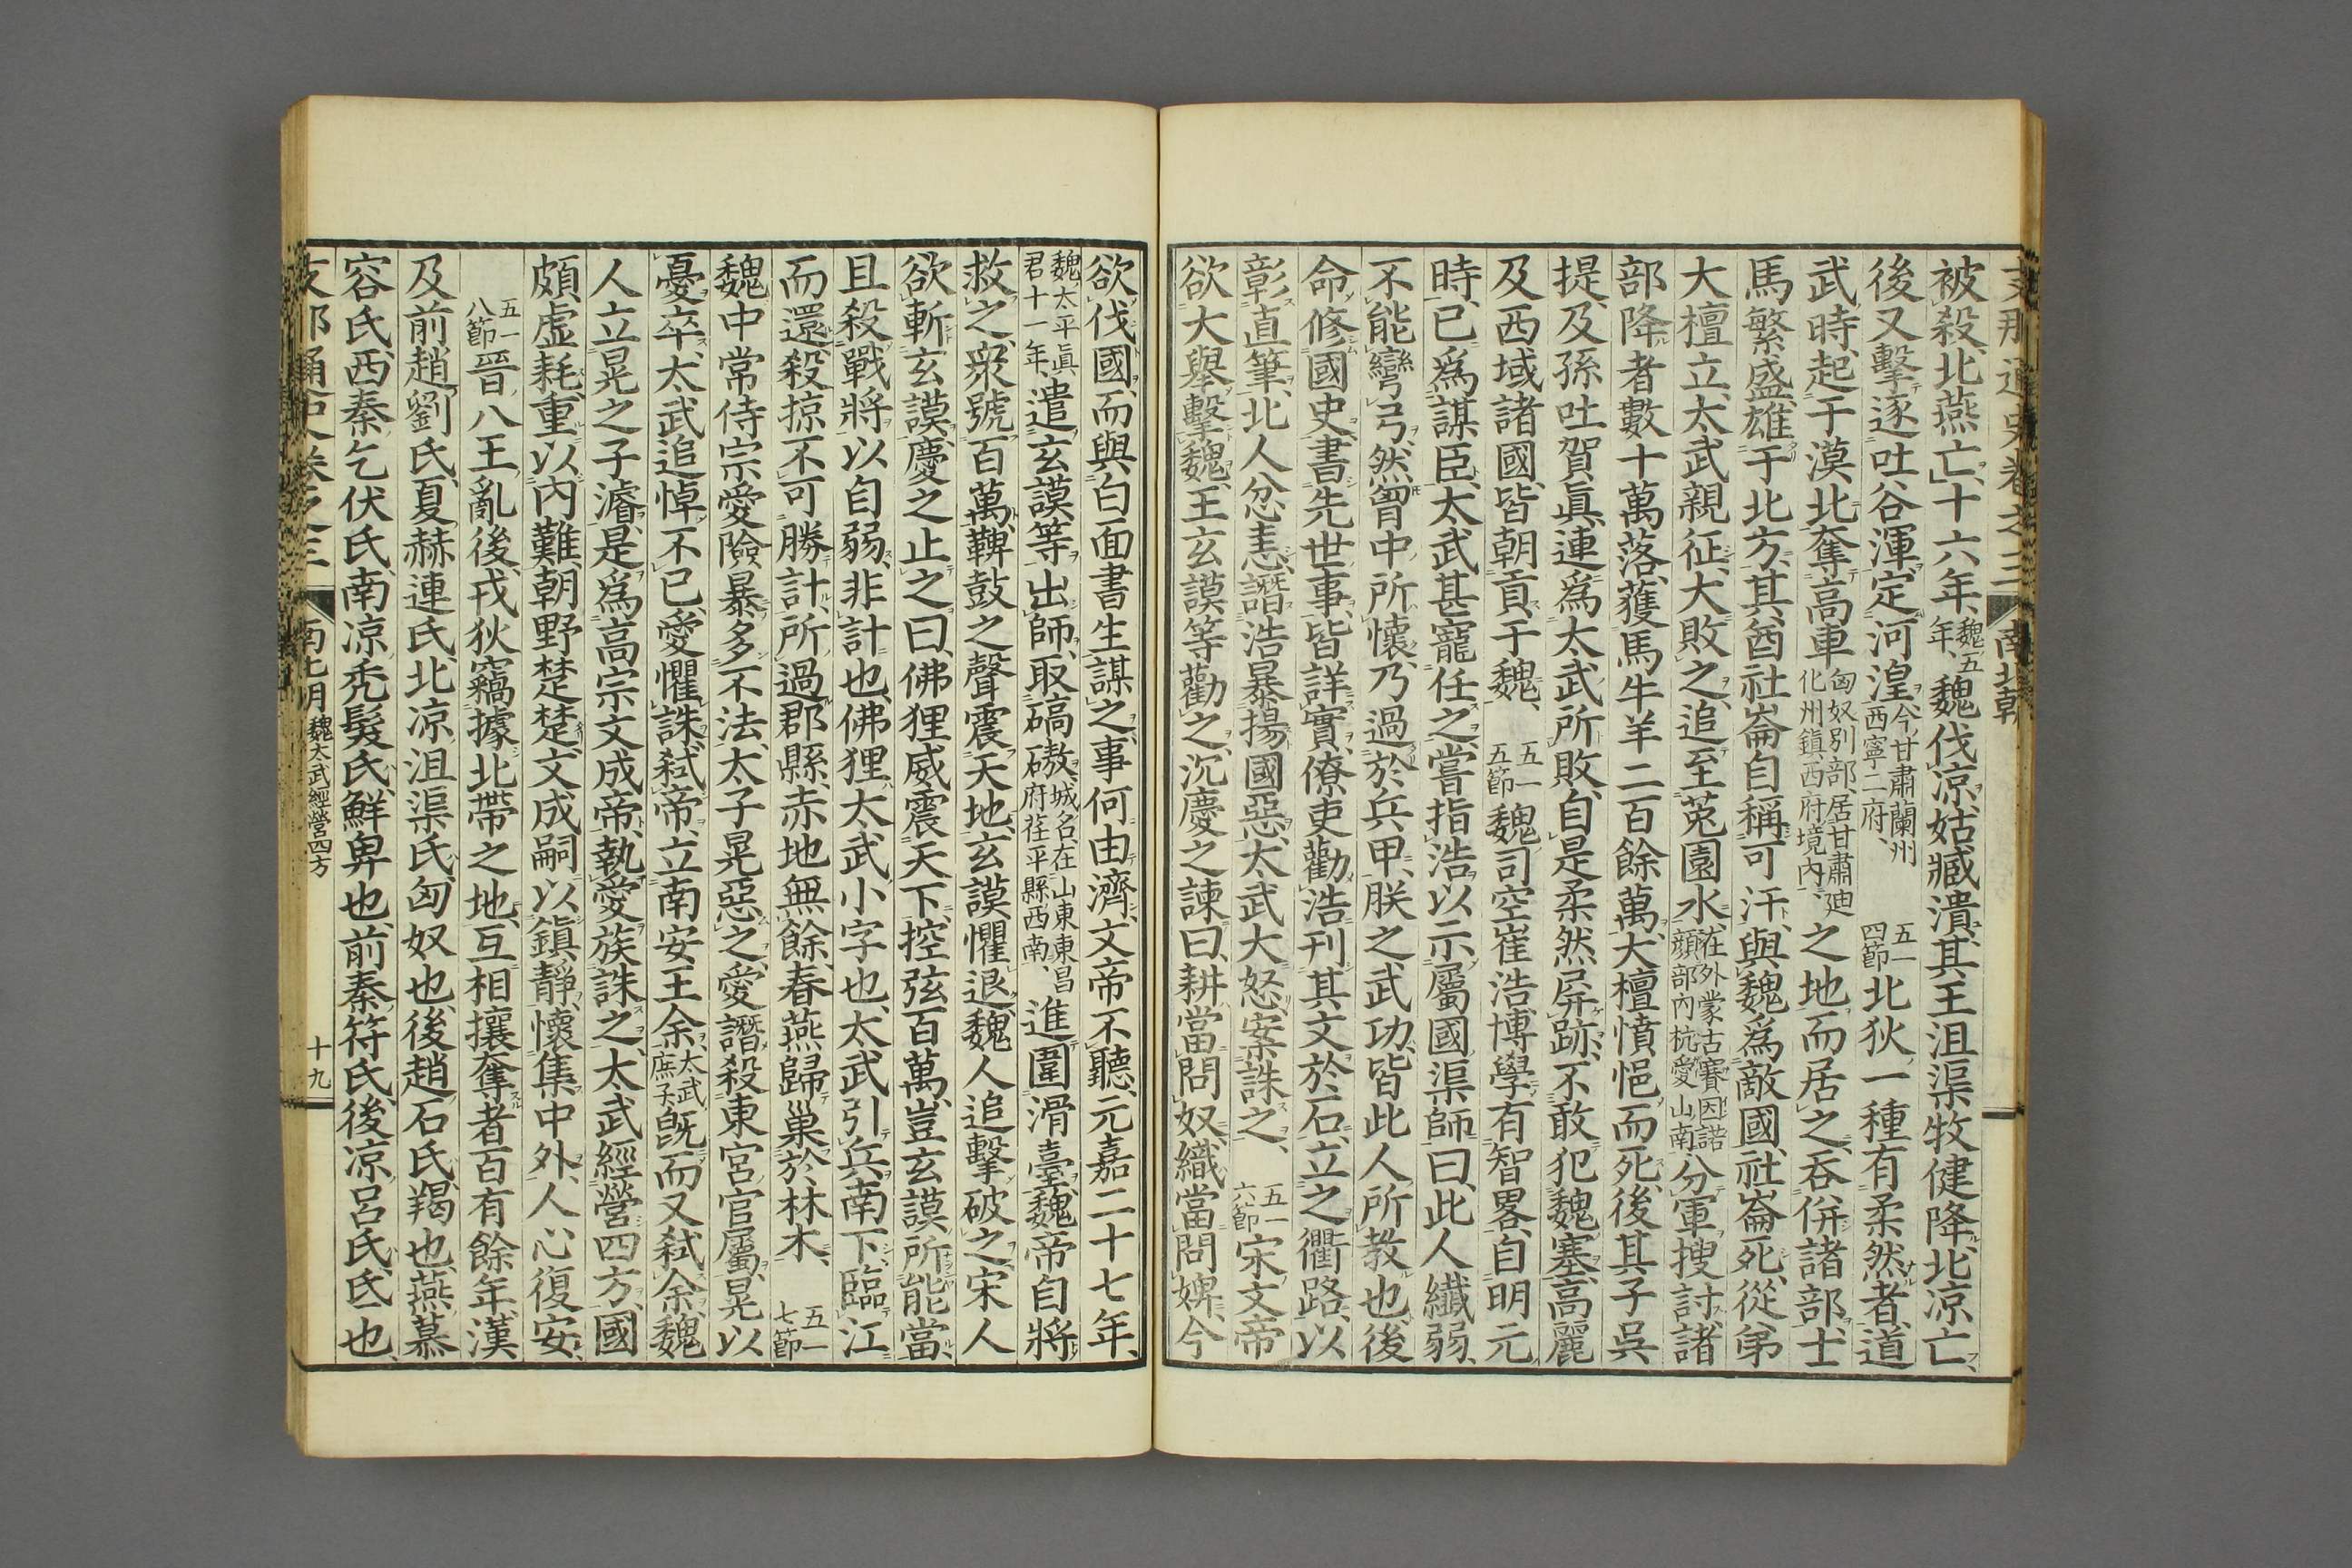 支那通史卷之三 南北朝
被殺、北燕亡、十六年、魏五年、魏伐涼、姑臧潰、其王沮渠牧健降、北涼亡、
後又擊逐吐谷渾、定河湟、今甘肅蘭州西寧二府、 五一四節 北狄一種有柔然者、道
武時、起于漠北、奪高車匈奴別部、居甘肅廸化州鎮西府境內、之地而居之、吞併諸部、士
馬繁盛、雄于北方、其酋社崙自稱可汗、與魏爲敵國、社崙死、從弟
大檀立、太武親征、大敗之、追至菟園水、在外蒙古賽因諾顔部內杭愛山南、分軍搜討、諸
部降者數十萬落、獲馬牛羊二百餘萬、大檀憤悒而死、後其子吳
提、及孫吐賀眞、連爲太武所敗、自是柔然屏跡、不敢犯魏塞、高麗
及西域諸國、皆朝貢于魏、 五一五節 魏司空崔浩、博學有智畧、自明元
時、已爲謀臣、太武甚寵任之、嘗指浩以示屬國渠師曰、此人纖弱、
不能彎弓、然胷中所懷、乃過於兵甲、朕之武功、皆此人所教也、後
命修國史、書先世事、皆詳實、僚吏勸浩刊其文於石、立之衢路、以
彰直筆、北人忿恚、譖浩暴揚國惡、太武大怒、案誅之、 五一六節 宋文帝
欲大舉擊魏、王玄謨等勸之、沉慶之諫曰、耕當問奴、織當問婢、今
欲伐國、而與白面書生謀之、事何由濟、文帝不聽、元嘉二十七年、
魏太平眞君十一年、遣玄謨等出師、取碻磝、城名、在山東東昌府荏平縣西南、進圍滑臺、魏帝自將
救之、衆號百萬、鞞鼓之聲震天地、玄謨懼退、魏人追擊破之、宋人
欲斬玄謨、慶之止之曰、佛狸威震天下、控弦百萬、豈玄謨所能當、
且殺戰將以自弱、非計也、佛狸太武小字也、太武引兵南下、臨江
而還、殺掠不可勝計、所過郡縣、赤地無餘、春燕歸巢於林木、 五一七節
魏中常侍宗愛險暴多不法、太子晃惡之、愛譖殺東宮官屬、晃以
憂卒、太武追悼不已、愛懼誅、弑帝、立南安王余、太武庶子、旣而又弑余、魏
人立晃之子濬、是爲高宗文成帝、執愛族誅之、太武經營四方、國
頗虛耗、重以內難、朝野楚楚、文成嗣以鎭靜、懷集中外、人心復安、
五一八節 晉八王亂後、戎狄竊據北帶之地、互相攘奪者百有餘年、漢
及前趙劉氏、夏赫連氏、北涼沮渠氏、匈奴也、後趙石氏、羯也、燕慕
容氏、西秦乞伏氏、南涼禿髮氏、鮮卑也、前秦苻氏、後涼呂氏、氐也、
支那通史卷之三 南北朝 魏太武經營四方 十九